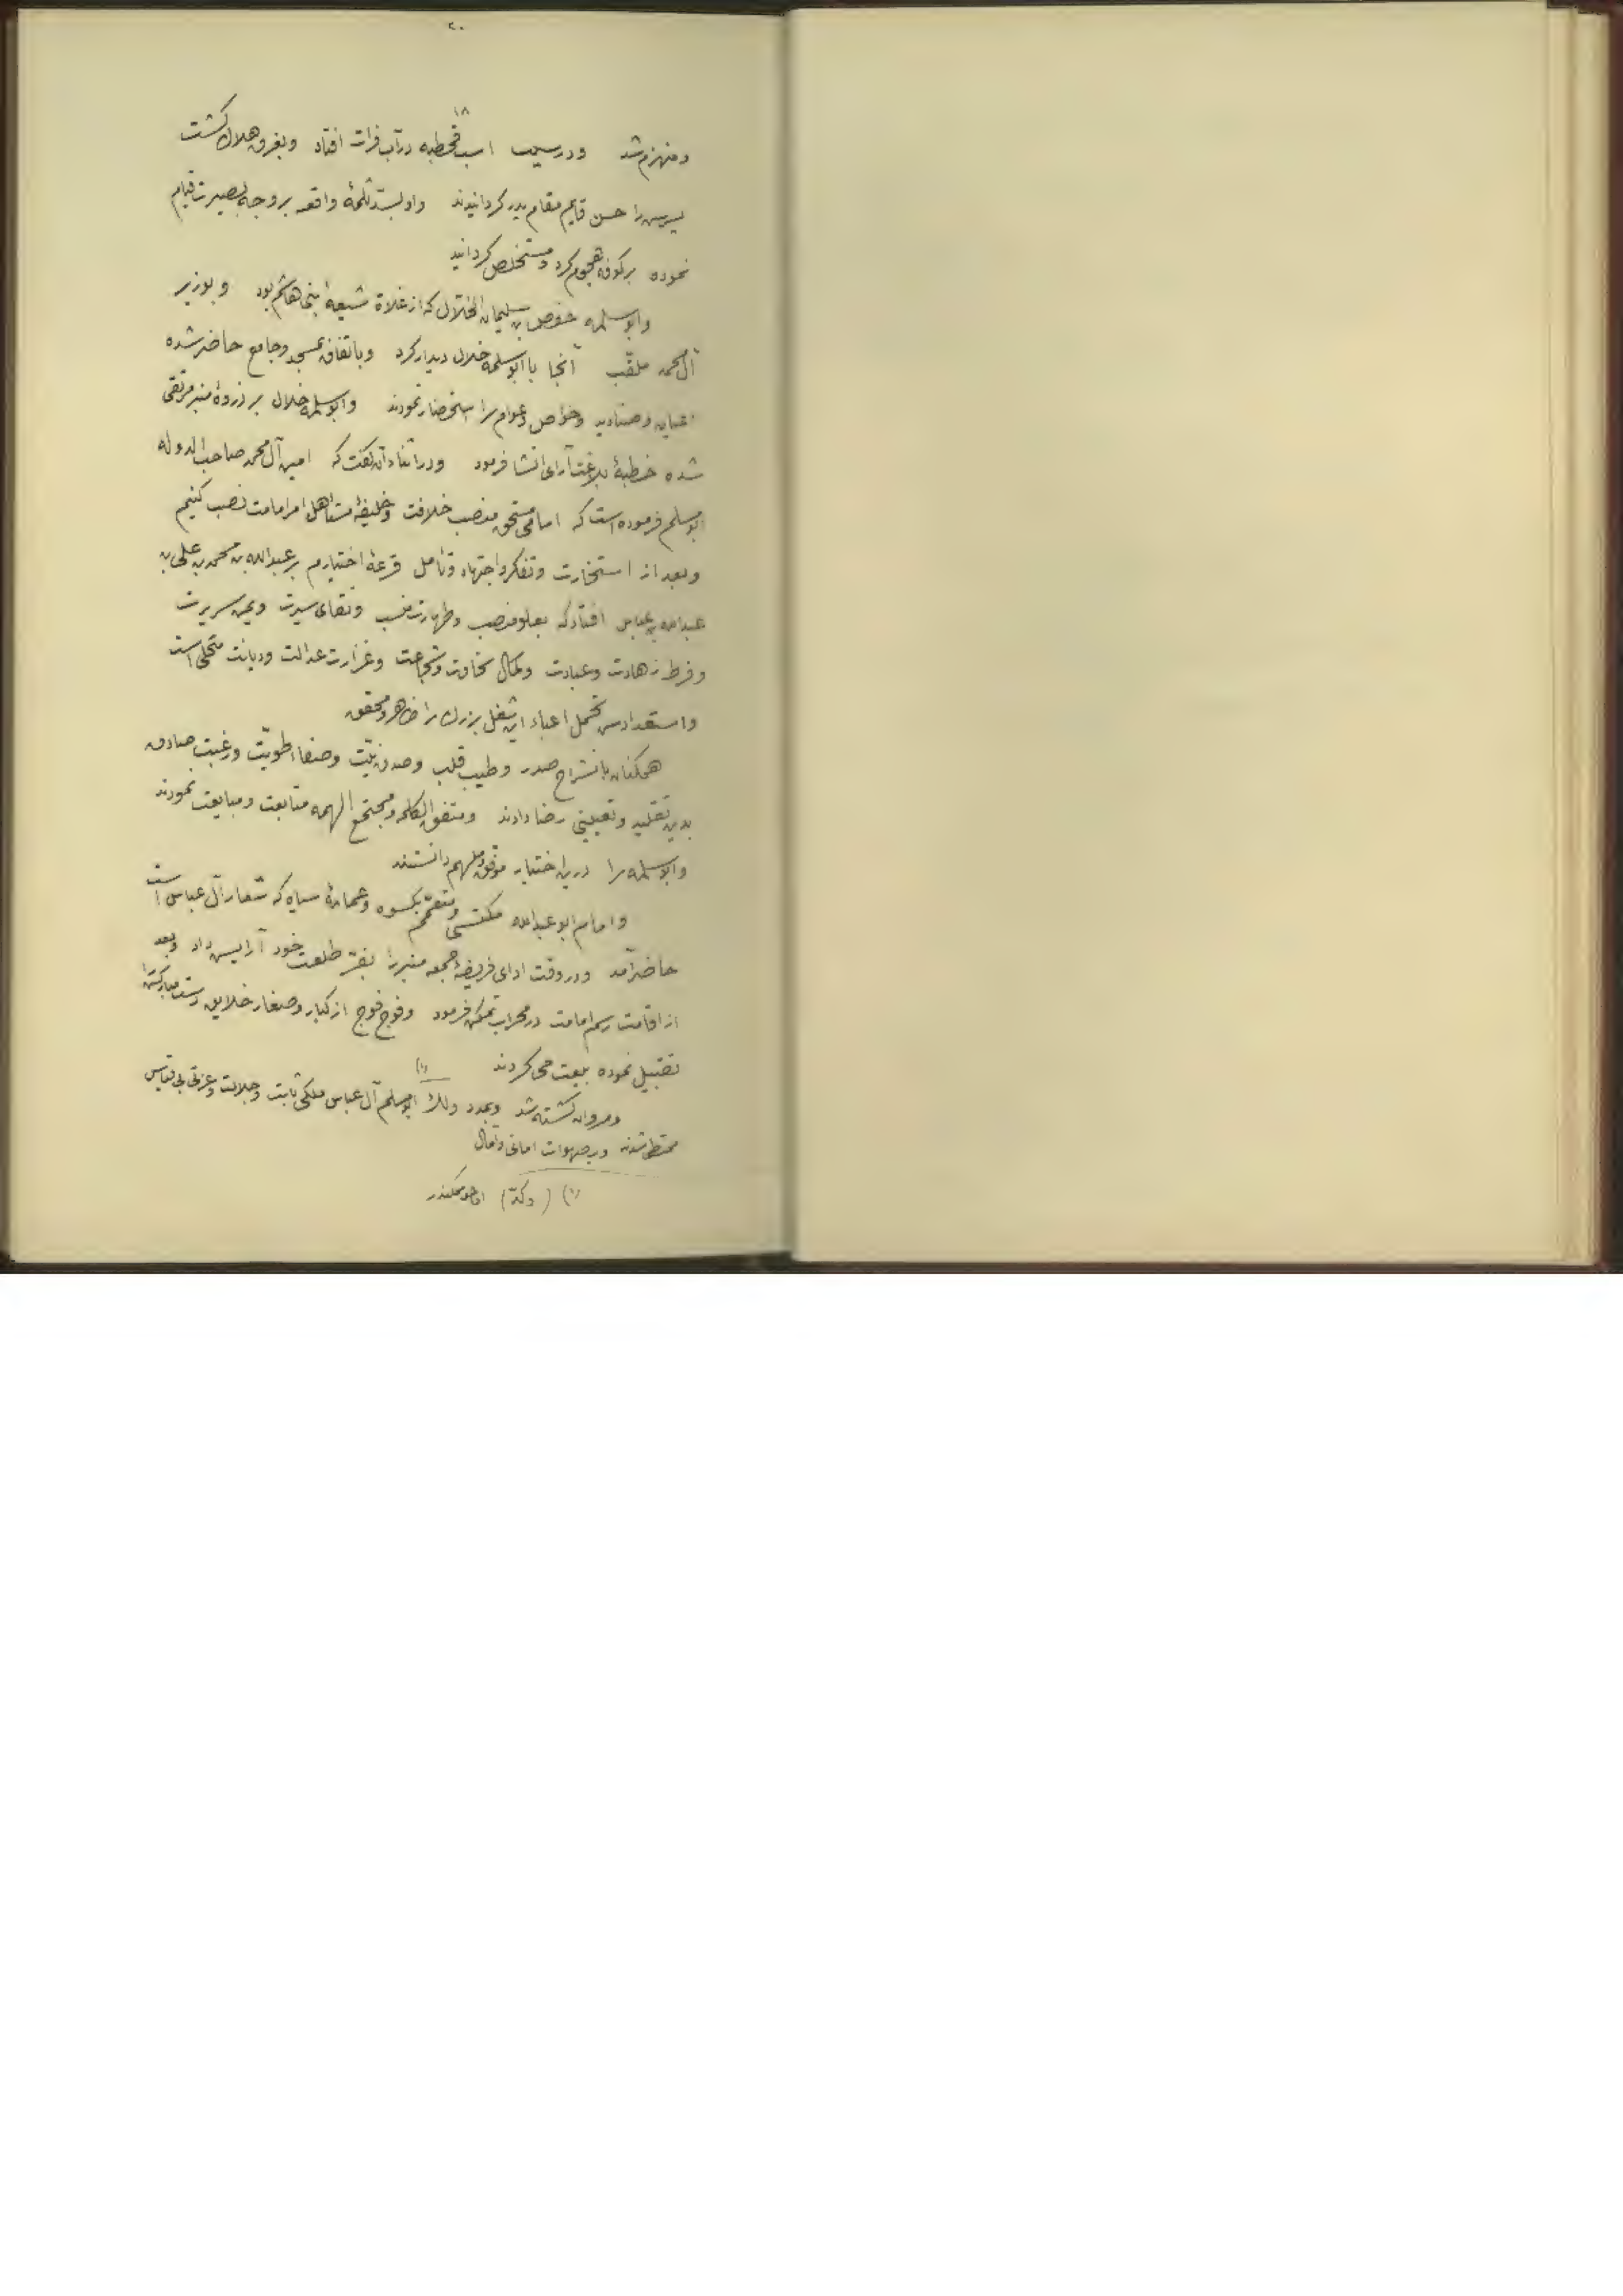 ٢٠
١٨
ومنهزم شد ودر سیب اسب قحطبه در آب فرات افتاد وبغرق هلاک گشت
پسرس را حسن قایم مقام پدر کردانیدند واو بسد ثلمهٔ واقعه بر وجه بصیرت قیام
نموده بر کوفه هجوم کرد ومستخلص کردانید
وابو سلمه حفص بن سلیمان الخلال که از غلاة شیعهٔ بنی هاشم بود وبوزیر
آل محمد ملقب آنجا با ابو سلمه خلال دیدار کرد وباتفاق بمسجد وجامع حاضر شده
اعیان وصنادید وخواص وعوام را استحضار نمودند وابو سلمه خلال بر ذروهٔ منبر مرتقی
شده خطبهٔ بلاغت آرای انشا فرمود ودر اثناء آن بگفت که امیر آل محمد صاحب الدوله
ابو مسلم فرموده است که امامی مستحق منصب خلافت وخلیفهٔ مستاهل امر امامت نصب کنیم
وبعد از استخارت وتفکر واجتهاد وتأمل قرعهٔ اختیارم بر عبدالله بن محمد بن علی بن
عبدالله بن عباس افتاد که بعلو منصب وطهارت نسب ونقای سیرت ویمن سریرت
وفرط زهادت وعبادت وکمال سخاوت وشجاعت وغزارت عدالت ودیانت متحلی است
واستعدادس تحمل اعباء این شغل بزرك را ظاهر ومحقق
همکنان بانشراح صدر وطیب قلب وصدق نیّت وصفاء طویّت ورغبت صادق
بدین تقلید وتعیین رضا دادند ومتفق الکلمه ومجتمع الهمه متابعت ومبایعت نمودند
وابو سلمه را درین اختیار موفق وملهم دانستند
وامام ابو عبدالله مکتسی ومتعمّم بکسوه وعمامهٔ سیاه که شعار آل عباس است
حاضر آمد ودر وقت ادای فریضهٔ جمعه منبر را بفرّ طلعت خود آرایس داد وبعد
از اقامت رسم امامت در محراب تمکن فرمود وفوج فوج از کبار وصغار خلایق دست مبارکش
تقبیل نموده بیعت می کردند (١)
ومروان کشته شد وبمدد ابو مسلم آل عباس ملکی ثابت وجلالت وعزتی بی قیاس
محتظی شدند وبر صهوات امانی وآمال
(١) (وکذا)